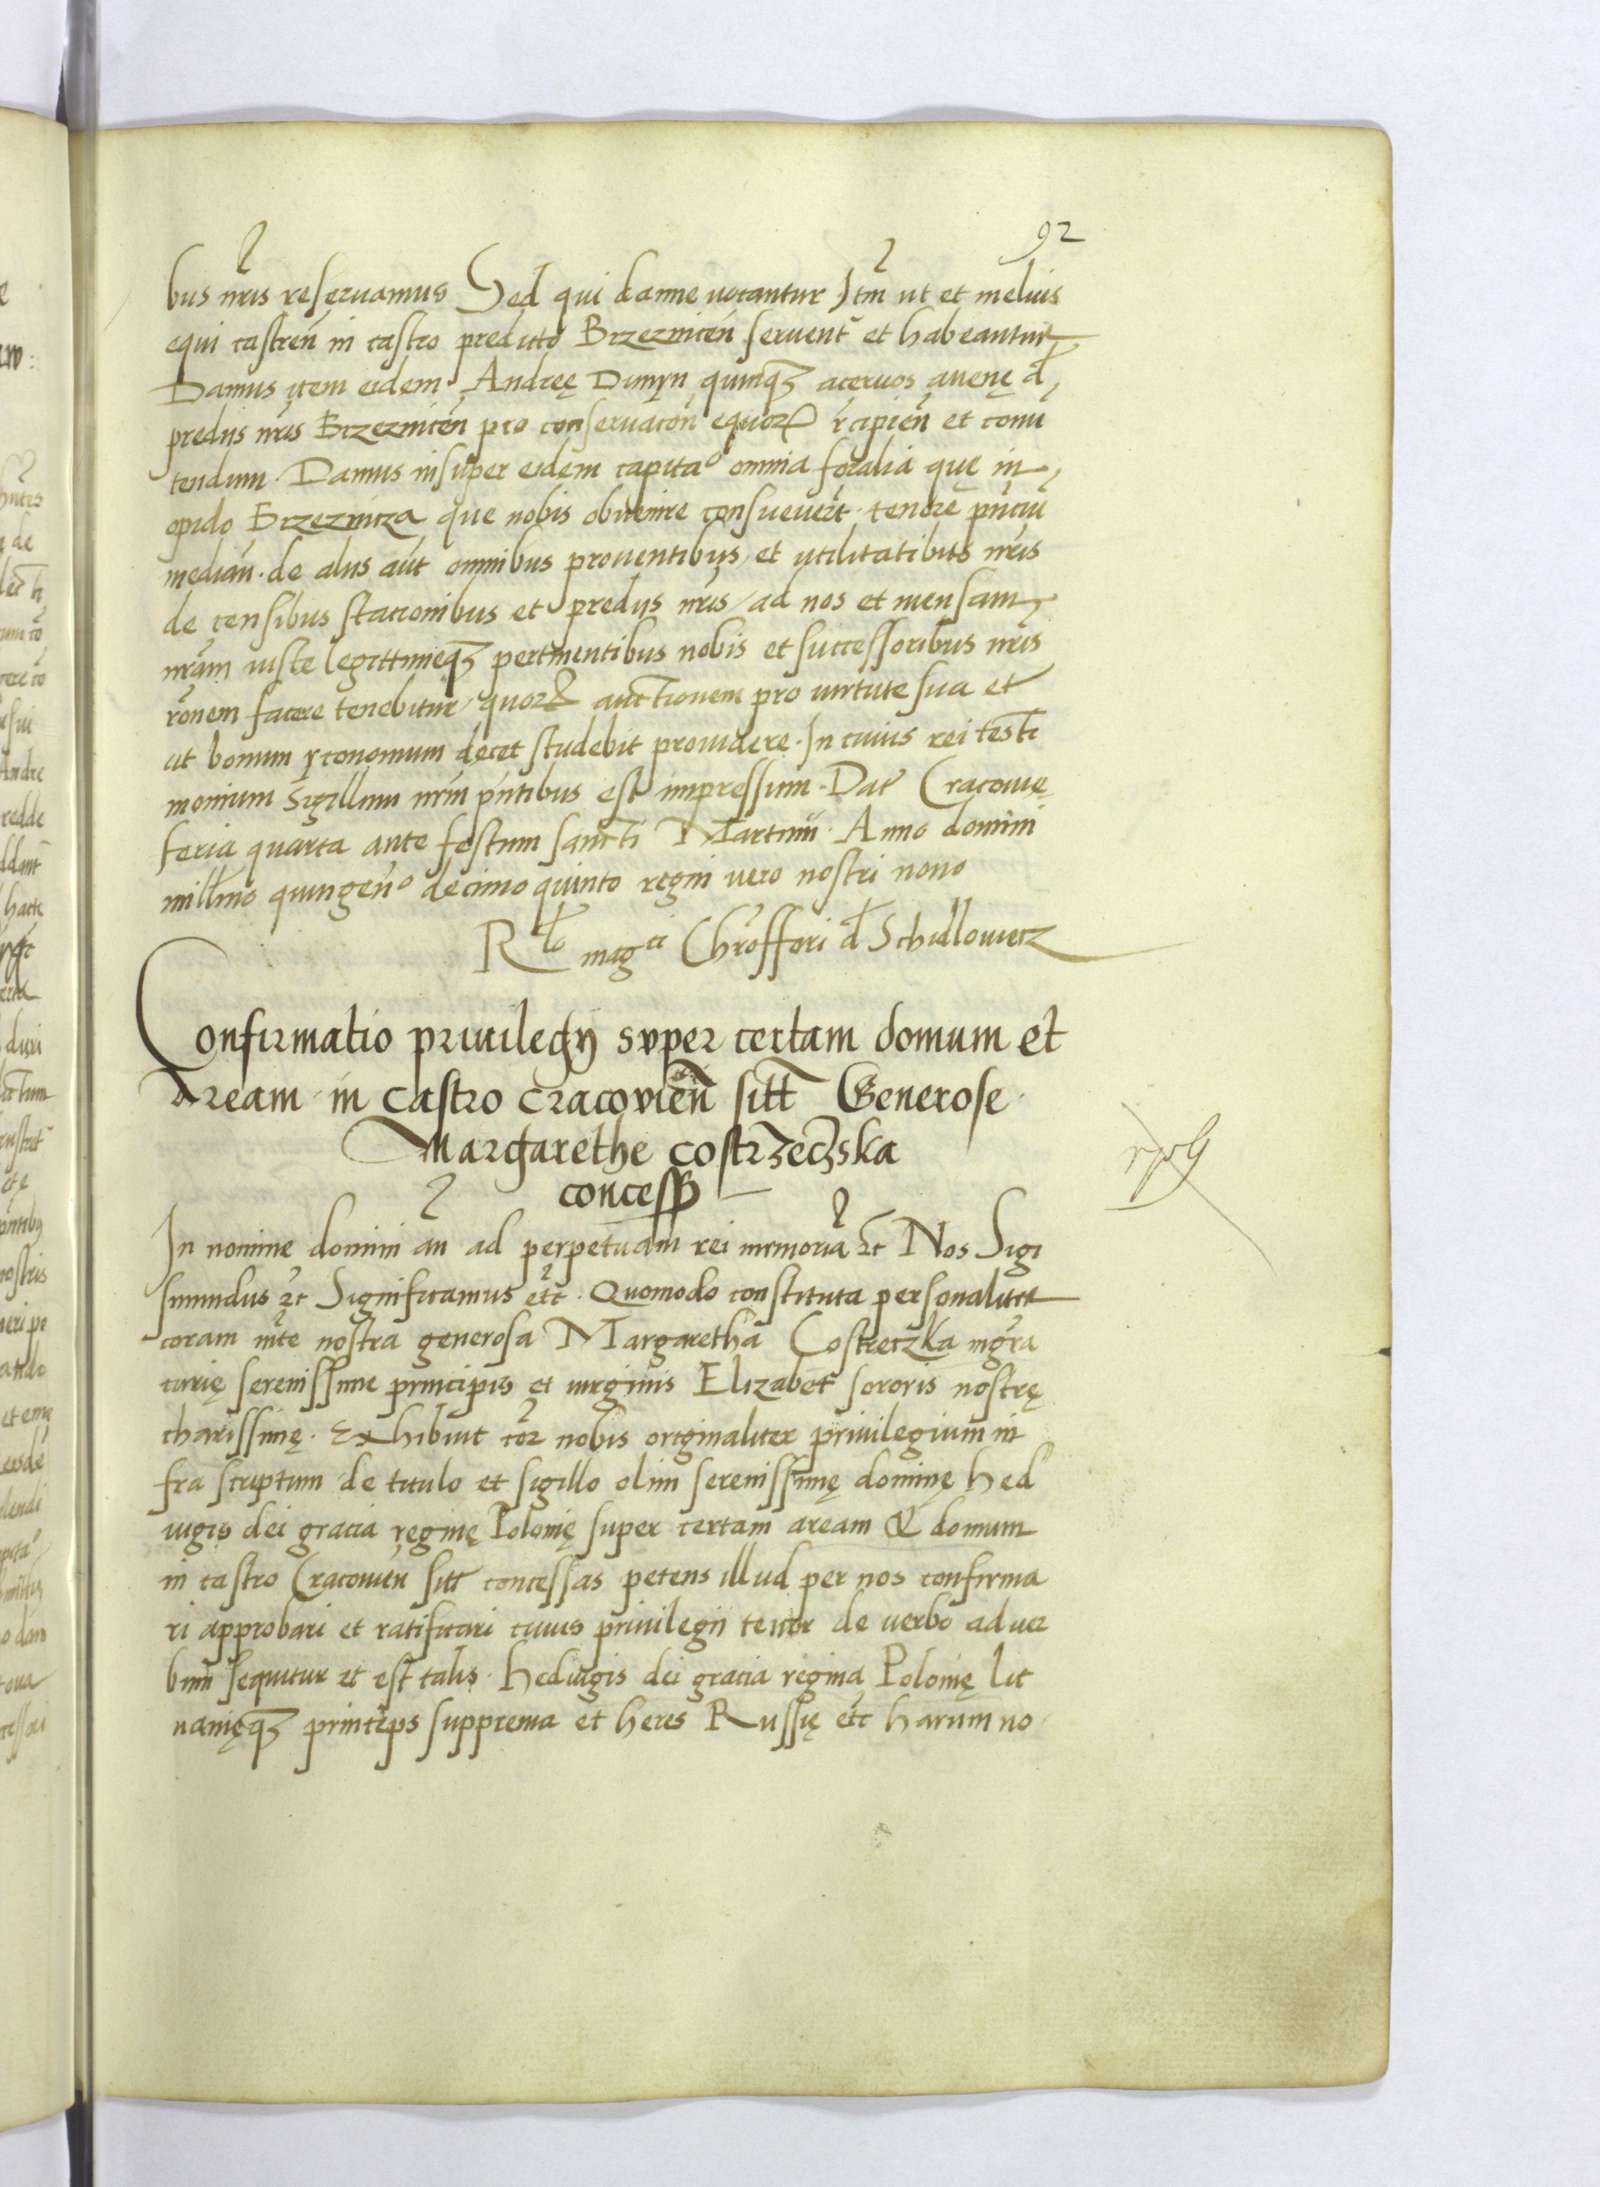 92
bus nr̃is reseruamus Sed qui danne vocantur Itm̃ ut et melius
equi castren̄ in castro predicto Brzeznicen̄ seruent̄ et habeantur
Damus item eidem Andreę Dimÿn quinqꝫ aceruos auenę d̄
predijs nr̃is Brzeznicen̄ pro conseruacōn equorꝝ r̃cipien̄ et conu
tendum. Damus insuper eidem capita⁰ omnia foralia quę in
opido Brzeznicza que nobis obuenire consueuer̃t. tenore pn̄ciū
median̄. de alijs aūt omnibus prouentibus et utilitatibus nr̃is
de censibus stacionibus et predijs nr̃is / ad nos et mensam
nr̃am iuste legittimeqꝫ pertinentibus nobis et successoribus nr̃is
r̃onem facere tenebitur / quorꝝ auctionem pro uirtute sua et
ut bonum yconomum decet studebit prouidere. In cuius rei testi
monium Sigillum nr̃m pn̄tibus est impressum. Dat̄ Cracouię
feria quarta ante festum sancti Martini. Anno domini
mill̄mo quingen⁰ decimo quinto regni uero nostri nono
R̄lo mag^ci Chr̄offori d̄ Schidlouiecz
Confirmatio priuilegÿ super certam domum et
Aream in castro cracouien̄ sitt̄ Generose
Margarethe costrzeczska
concess̄
In nomine domini an̄ ad perpetuam rei memoriā ꝛc̄ Nos Sigi
smundus ꝛc̄ Significamus etc̄. Quomodo constituta personaliter
coram m̄te nostra generosa Margaretha Costreczka mgr̃a
curię serenissime principis et uirginis Elizabet sororis nostrę
charissimę. Exhibuit cor̃ nobis originaliter priuilegium in
fra scriptum de titulo et sigillo olim serenissimę dominę hed
uigis dei gracia reginę Polonię super certam aream & domum
in castro Cracouien̄ sitt̄ concessas petens illud per nos confirma
ri approbari et ratificari cuius priuilegii tenor de uerbo ad uer
bum sequitur et est talis. heduigis dei gracia regina Polonię Lit
uanięqꝫ princeps supprema et heres Russię etc̄ harum no